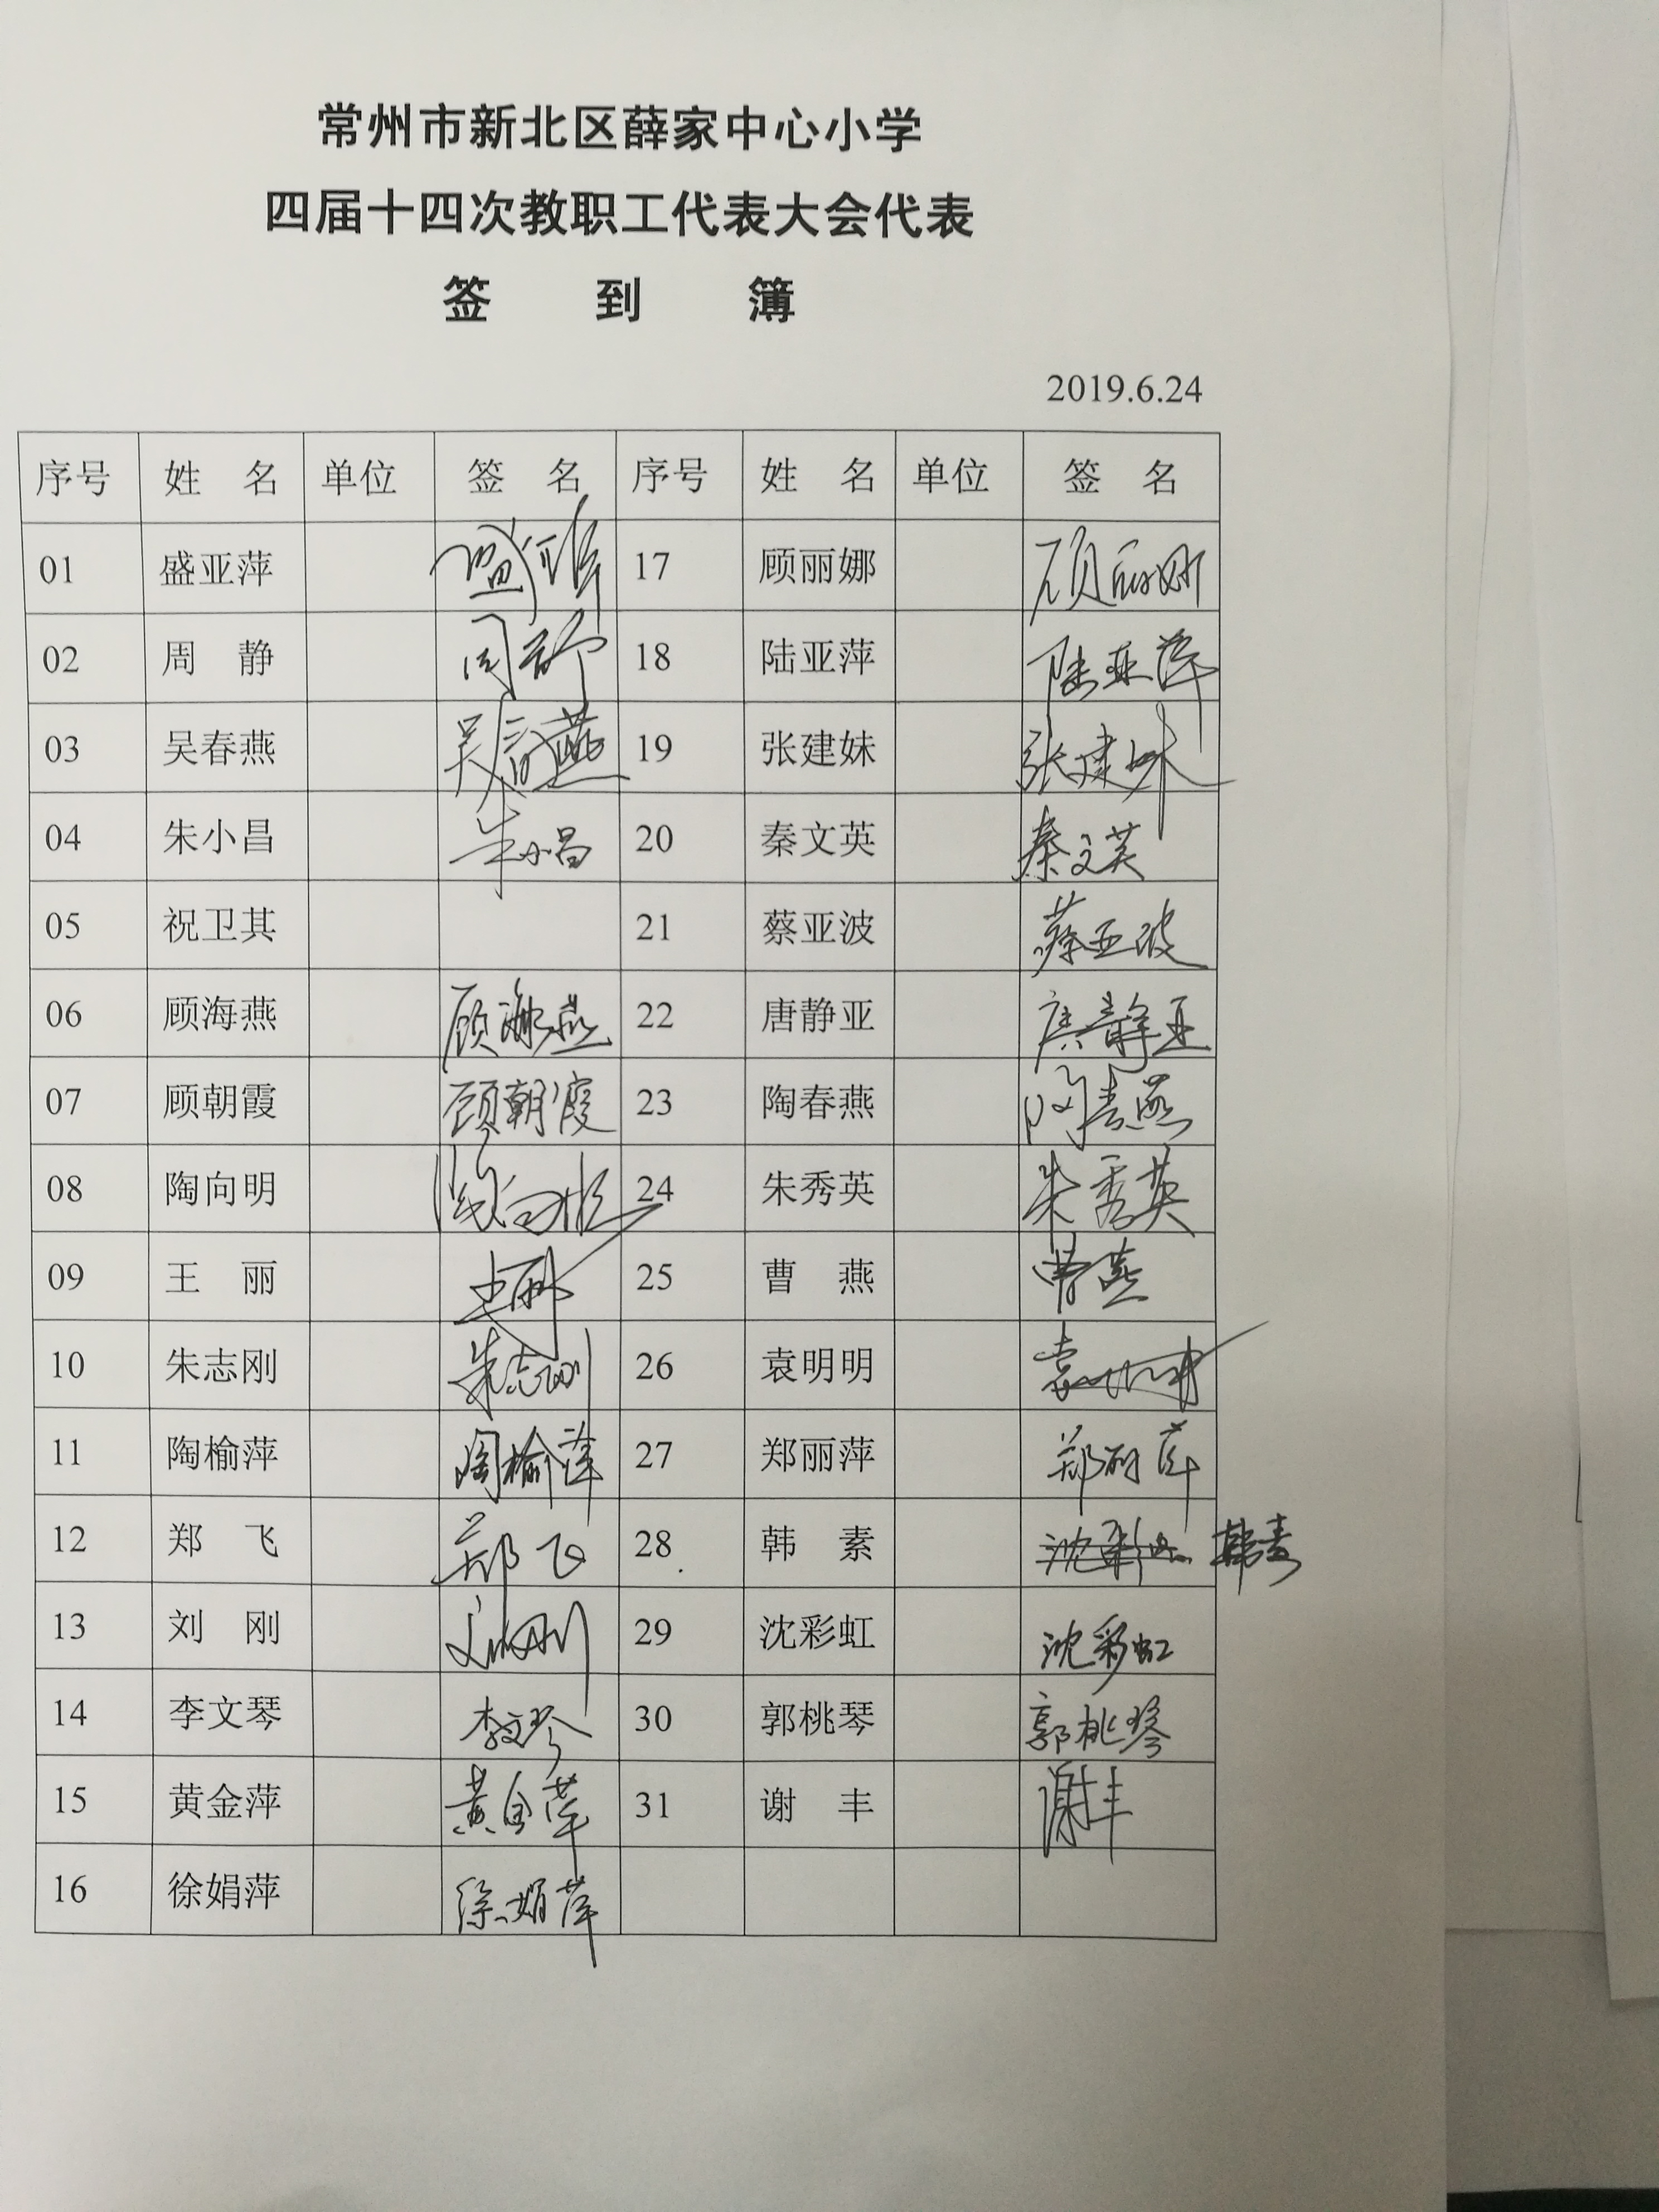 常州市新北区薛家中心小学
四届十四次教职工代表大会代表
签 到 簿
2019.6.24
序号 姓 名 单位 签 名 序号 姓 名 单位 签 名
01 盛亚萍 盛亚萍 17 顾丽娜 顾丽娜
02 周 静 周静 18 陆亚萍 陆亚萍
03 吴春燕 吴春燕 19 张建妹 张建妹
04 朱小昌 朱小昌 20 秦文英 秦文英
05 祝卫其 21 蔡亚波 蔡亚波
06 顾海燕 顾海燕 22 唐静亚 唐静亚
07 顾朝霞 顾朝霞 23 陶春燕 陶春燕
08 陶向明 陶向明 24 朱秀英 朱秀英
09 王 丽 王丽 25 曹 燕 曹燕
10 朱志刚 朱志刚 26 袁明明 袁明明
11 陶榆萍 陶榆萍 27 郑丽萍 郑丽萍
12 郑 飞 郑飞 28 韩 素 沈彩虹 韩素
13 刘 刚 刘刚 29 沈彩虹 沈彩虹
14 李文琴 李文琴 30 郭桃琴 郭桃琴
15 黄金萍 黄金萍 31 谢 丰 谢丰
16 徐娟萍 徐娟萍